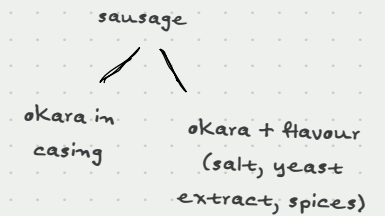 sausage
okara in
casing
okara + flavour
(salt, yeast
extract, spices)